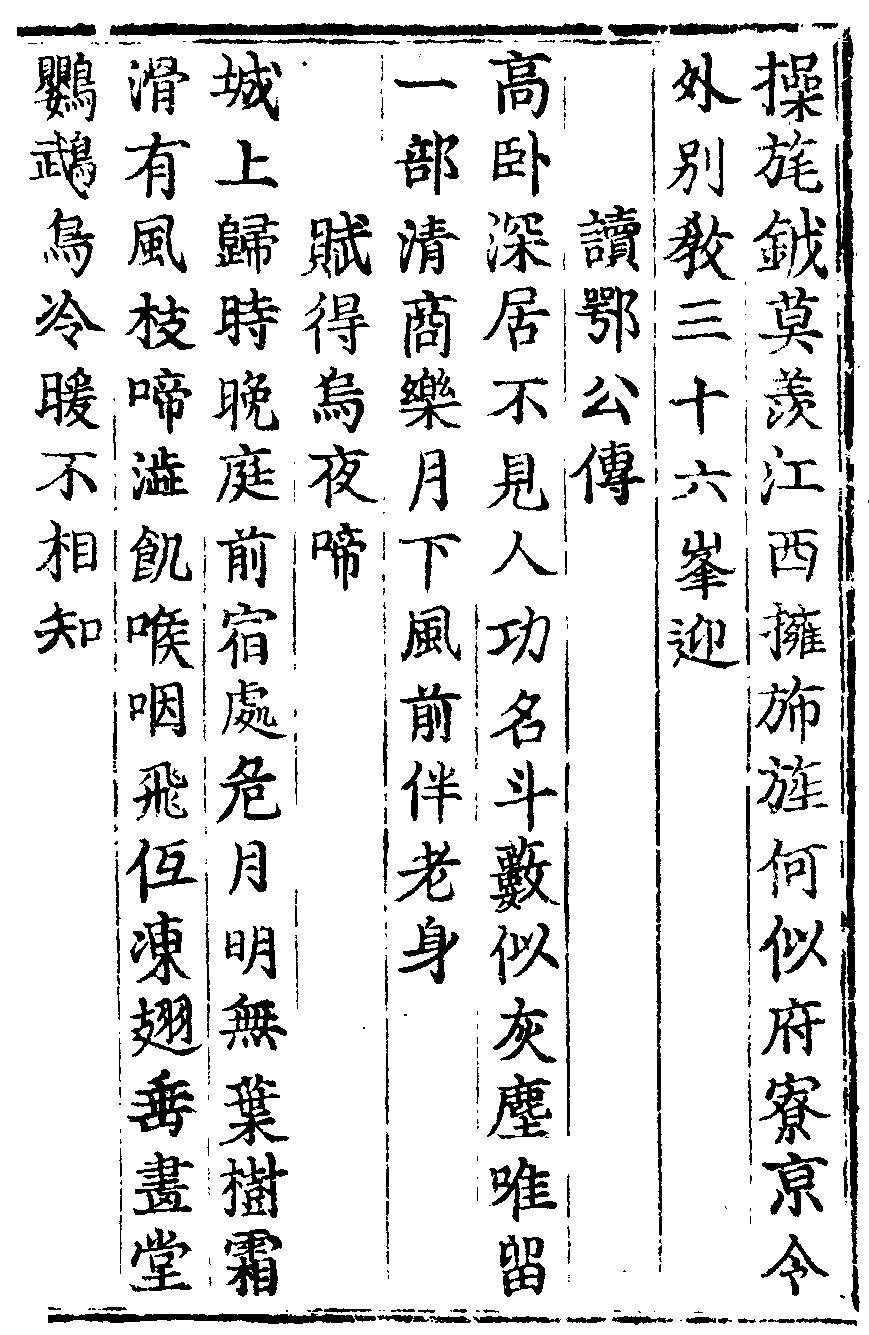 操旄鉞莫羨江西擁斾旌何似府寮亰令
外别教三十六峯迎
讀鄂公傳
高卧深居不見人功名斗藪似灰塵唯留
一部清商樂月下風前伴老身
賦得烏夜啼
城上歸時晚庭前宿處危月明無葉樹霜
滑有風枝啼澁飢喉咽飛伍凍翅垂畫堂
鸚鵡鳥冷暖不相知